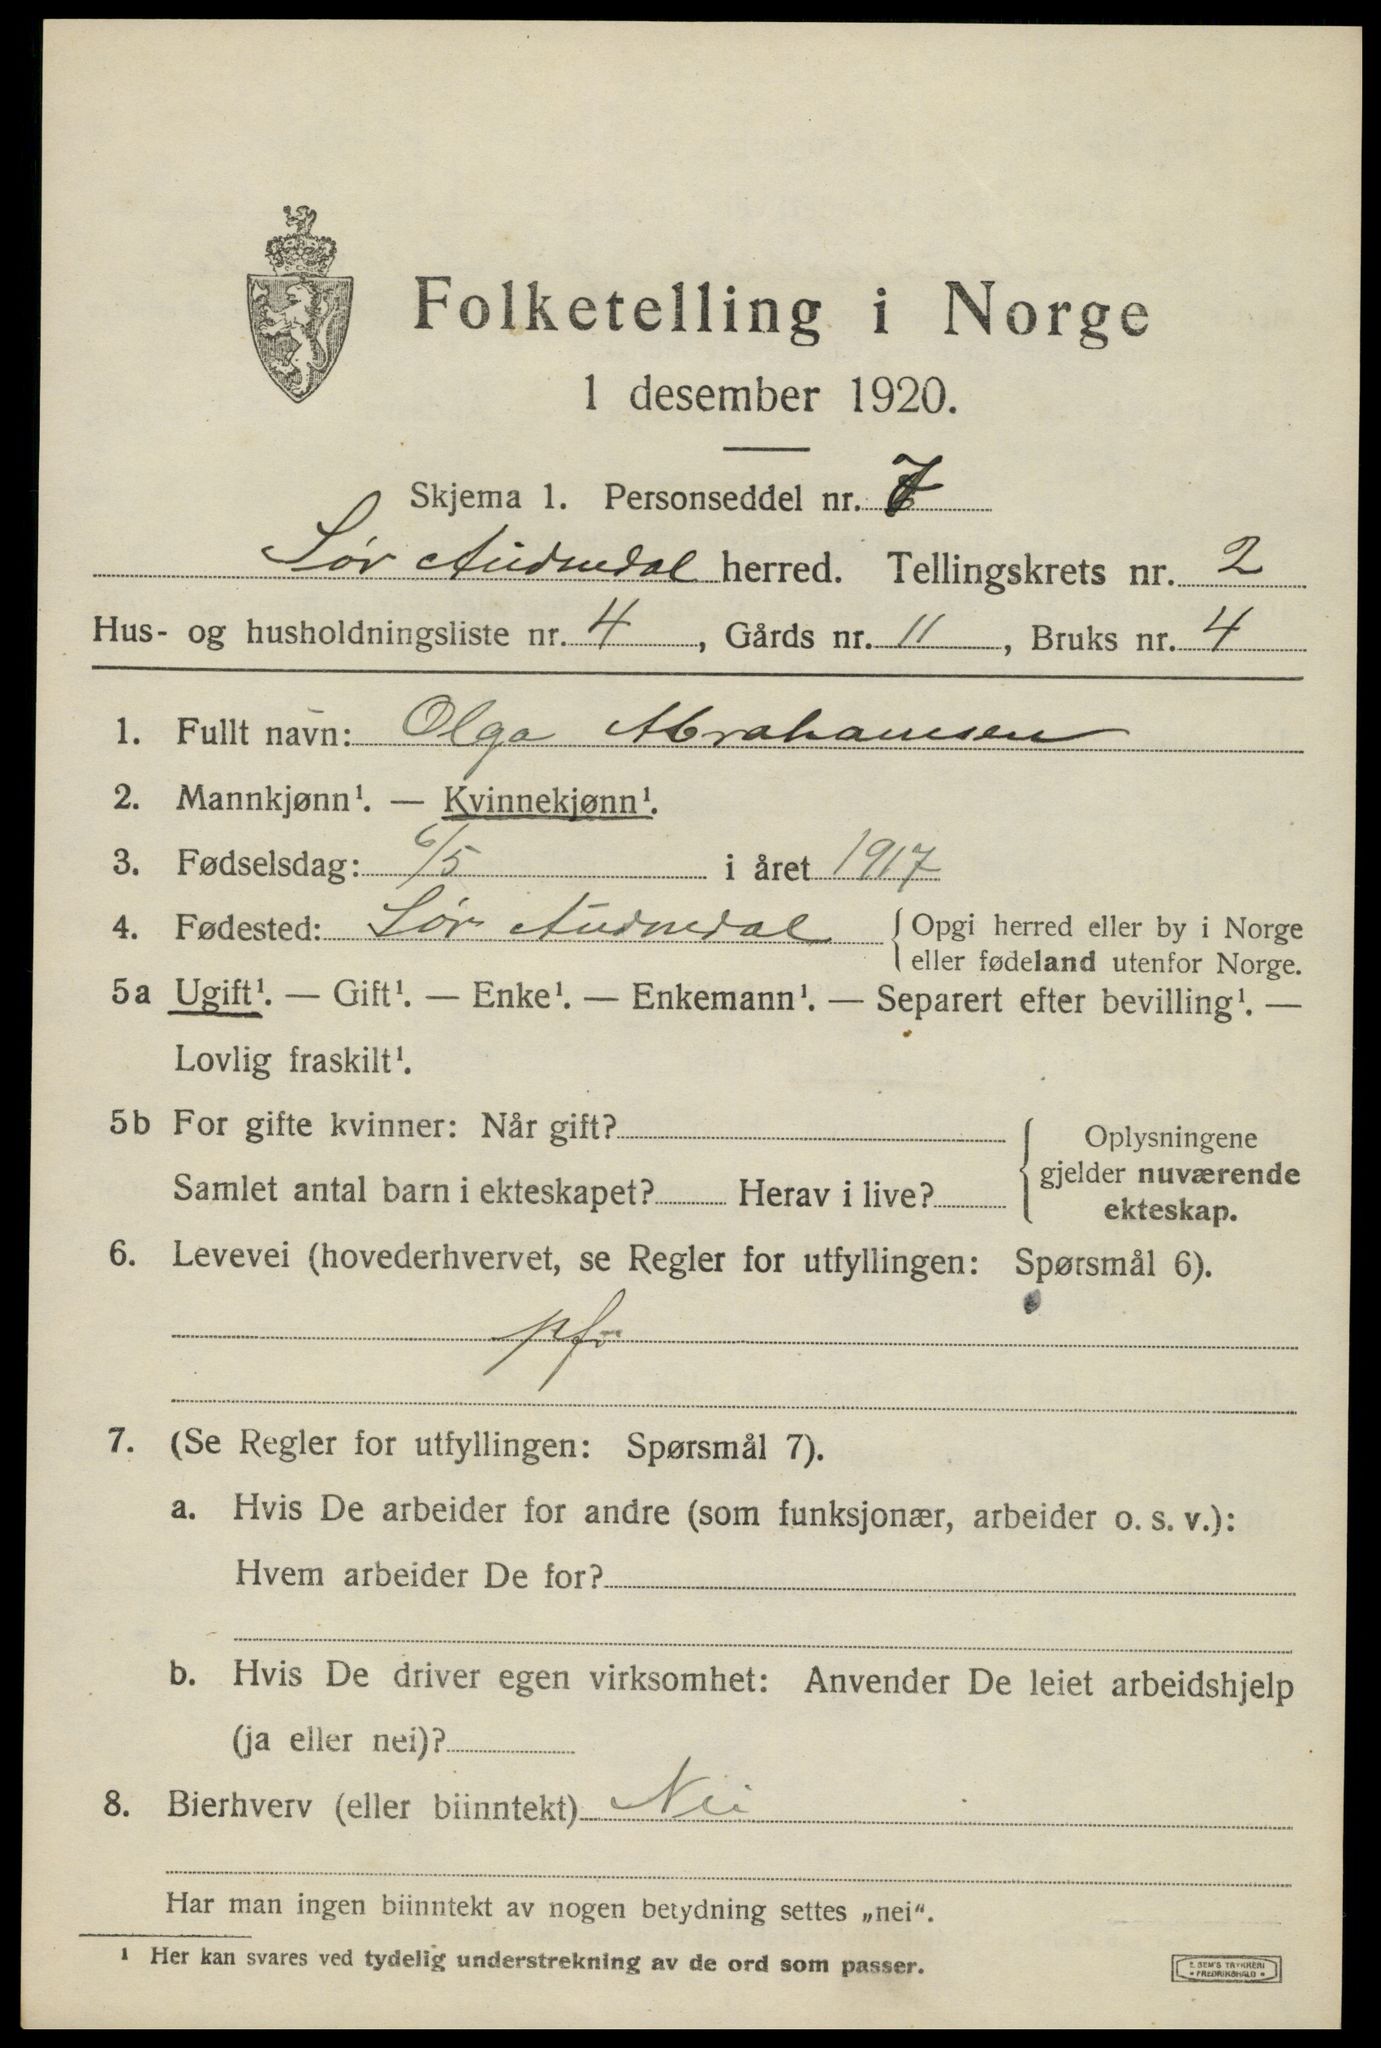 Folketelling i Norge
1 desember 1920.
Skjema 1. Personseddel nr. 7
Sør Audnedal herred. Tellingskrets nr. 2
Hus- og husholdningsliste nr. 4, Gårds nr. 11, Bruks nr. 4
1. Fullt navn: Olga Abrahamsen
2. Mannkjønn¹. — Kvinnekjønn¹.
3. Fødselsdag: 6/5 i året 1917
4. Fødested: Sør Audnedal { Opgi herred eller by i Norge
eller fødeland utenfor Norge.
5a Ugift¹. — Gift¹. — Enke¹. — Enkemann¹. — Separert efter bevilling¹. —
Lovlig fraskilt¹.
5b For gifte kvinner: Når gift?
Samlet antal barn i ekteskapet? Herav i live?
Oplysningene
gjelder nuværende
ekteskap.
6. Levevei (hovederhvervet, se Regler for utfyllingen: Spørsmål 6).
pf
7. (Se Regler for utfyllingen: Spørsmål 7).
a. Hvis De arbeider for andre (som funksjonær, arbeider o. s. v.):
Hvem arbeider De for?
b. Hvis De driver egen virksomhet: Anvender De leiet arbeidshjelp
(ja eller nei)?
8. Bierhverv (eller biinntekt) Nei
Har man ingen biinntekt av nogen betydning settes „nei".
¹ Her kan svares ved tydelig understrekning av de ord som passer.
E. SEM'S TRYKKERI
• FREDRIKSHALD •